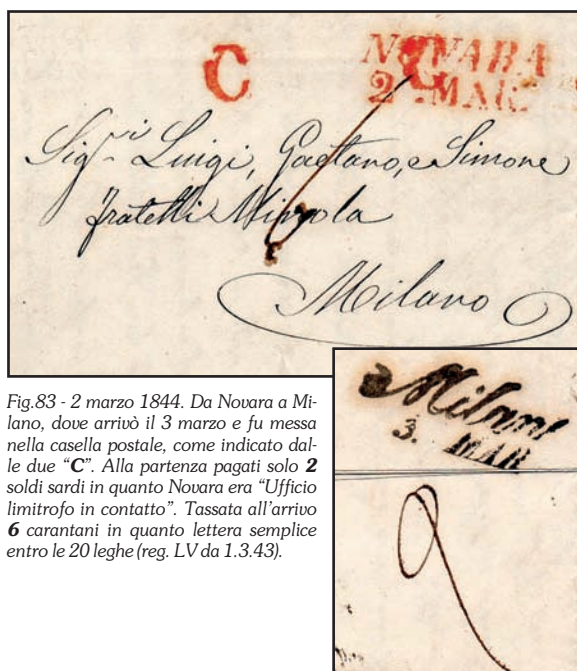 C
NOVARA
C
2 MAR.
Sig.ri Luigi, Gaetano, e Simone
fratelli
Milano
6
Fig.83 - 2 marzo 1844. Da Novara a Mi-
lano, dove arrivò il 3 marzo e fu messa
nella casella postale, come indicato dal-
le due “C”. Alla partenza pagati solo 2
soldi sardi in quanto Novara era “Ufficio
limitrofo in contatto”. Tassata all’arrivo
6 carantani in quanto lettera semplice
entro le 20 leghe (reg. LV da 1.3.43).
Milano
3. MAR